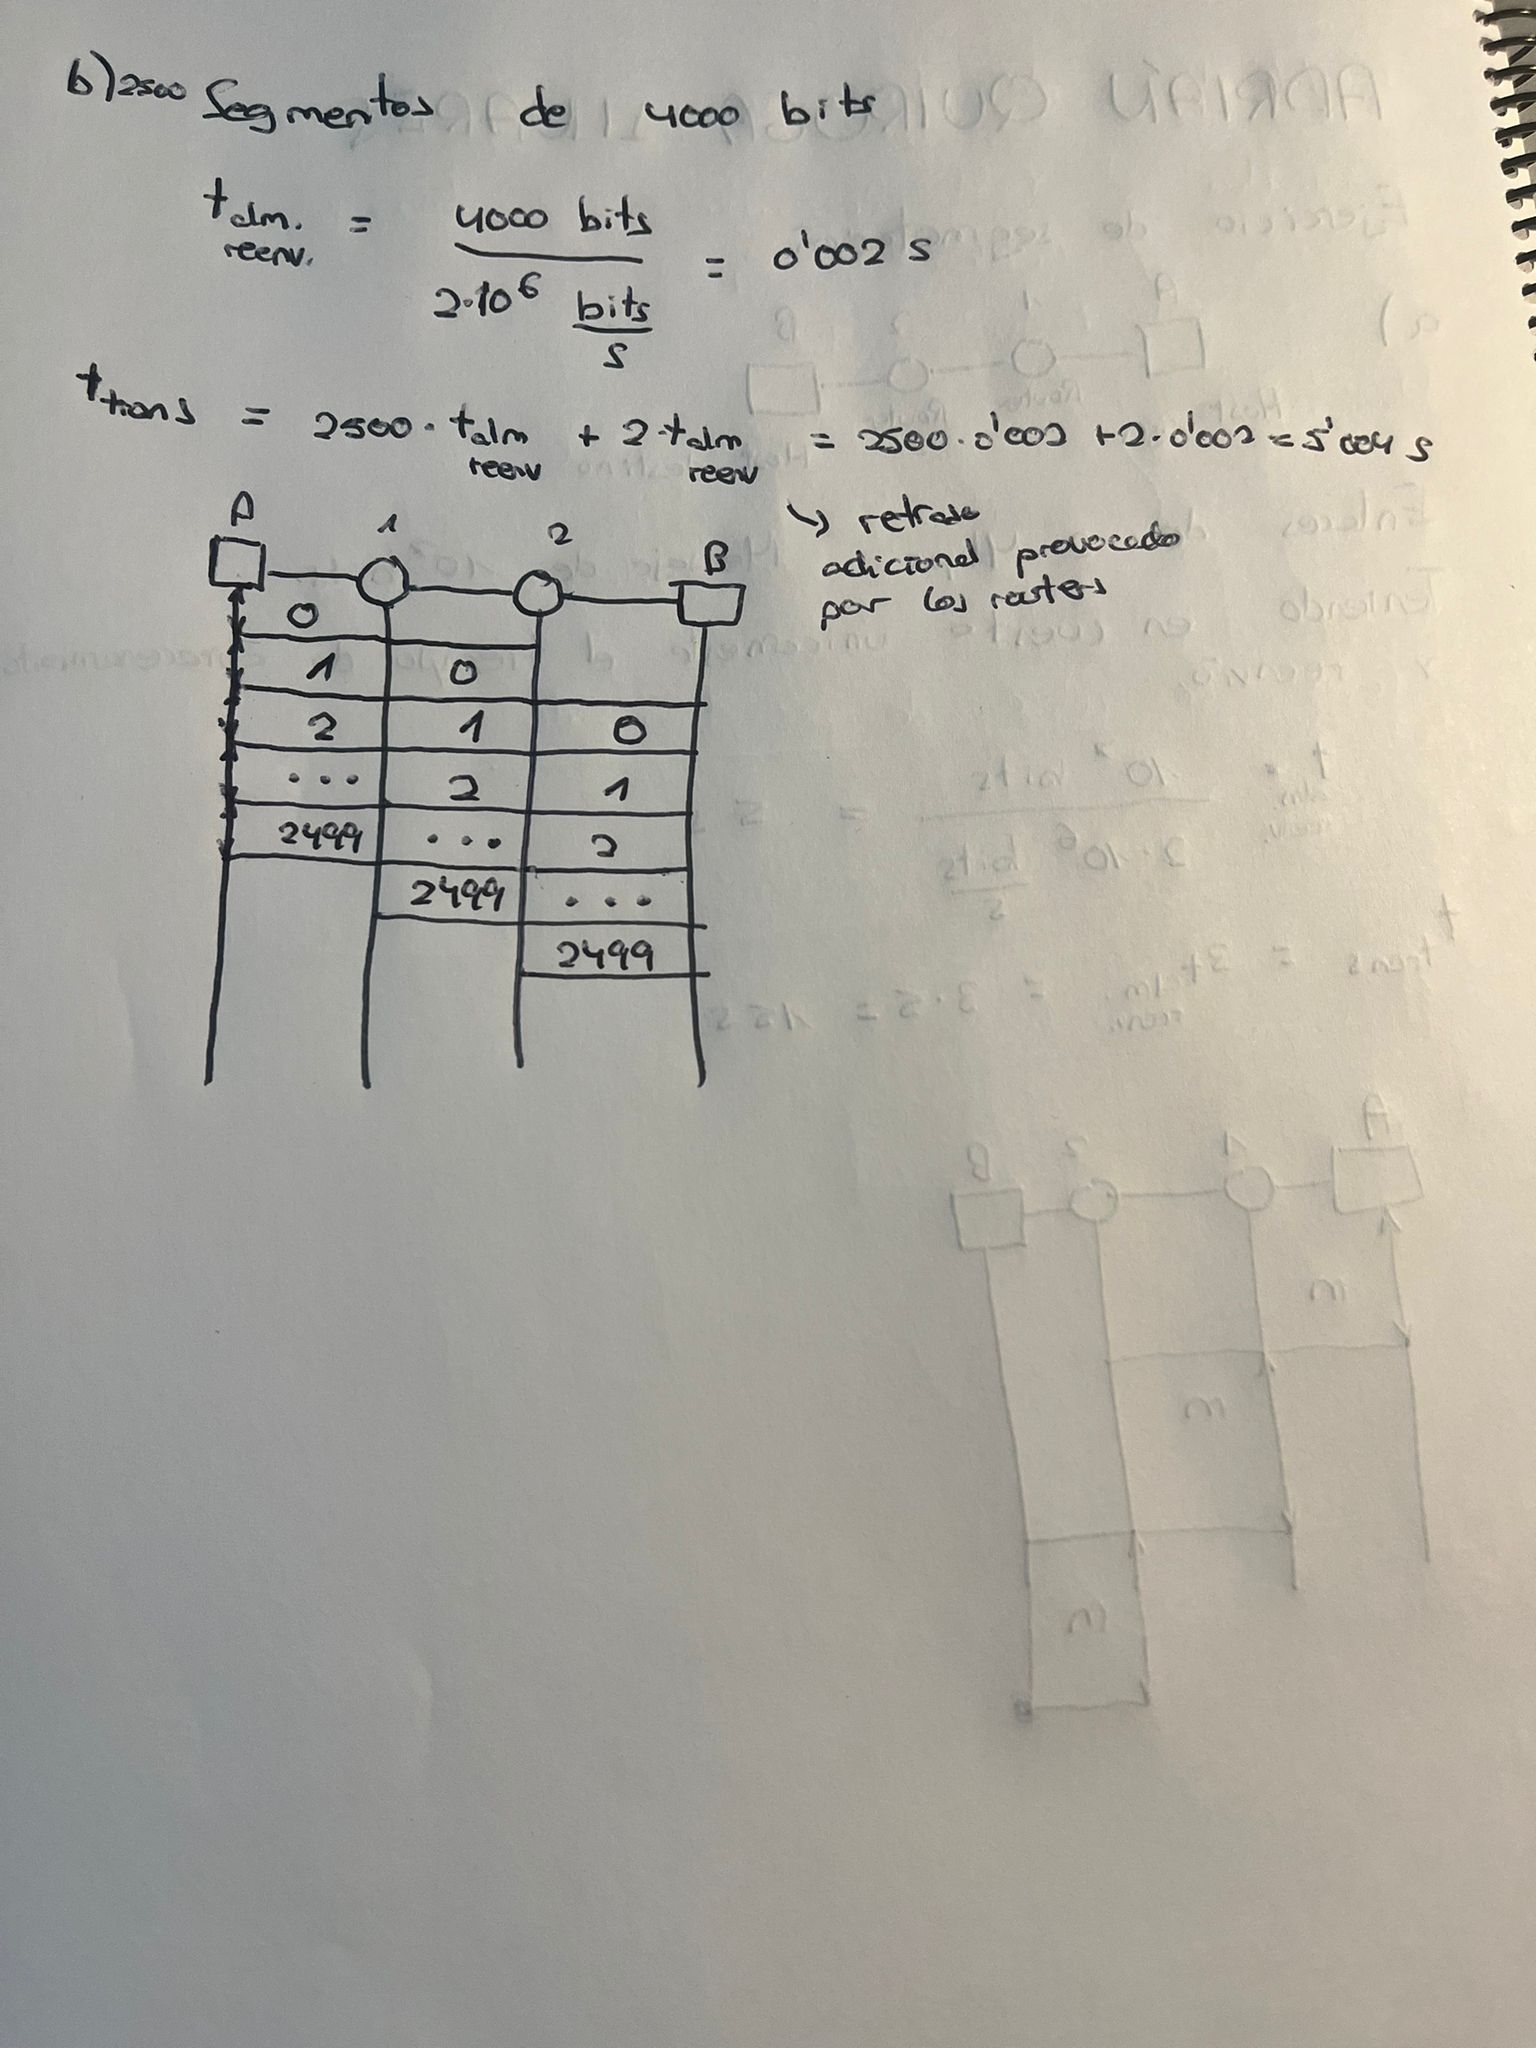 b) 2500 Segmentos de 4000 bits
t alm. reenv. = 4000 bits / 2·10⁶ bits/s = 0'002 s
t trans = 2500 · t alm reenv + 2 · t alm reenv = 2500 · 0'002 + 2 · 0'002 = 5'004 s
↳ retraso
adicional provocado
por los routers
A 1 2 B
0
1 0
2 1 0
... 2 1
2499 ... 2
2499 ...
2499